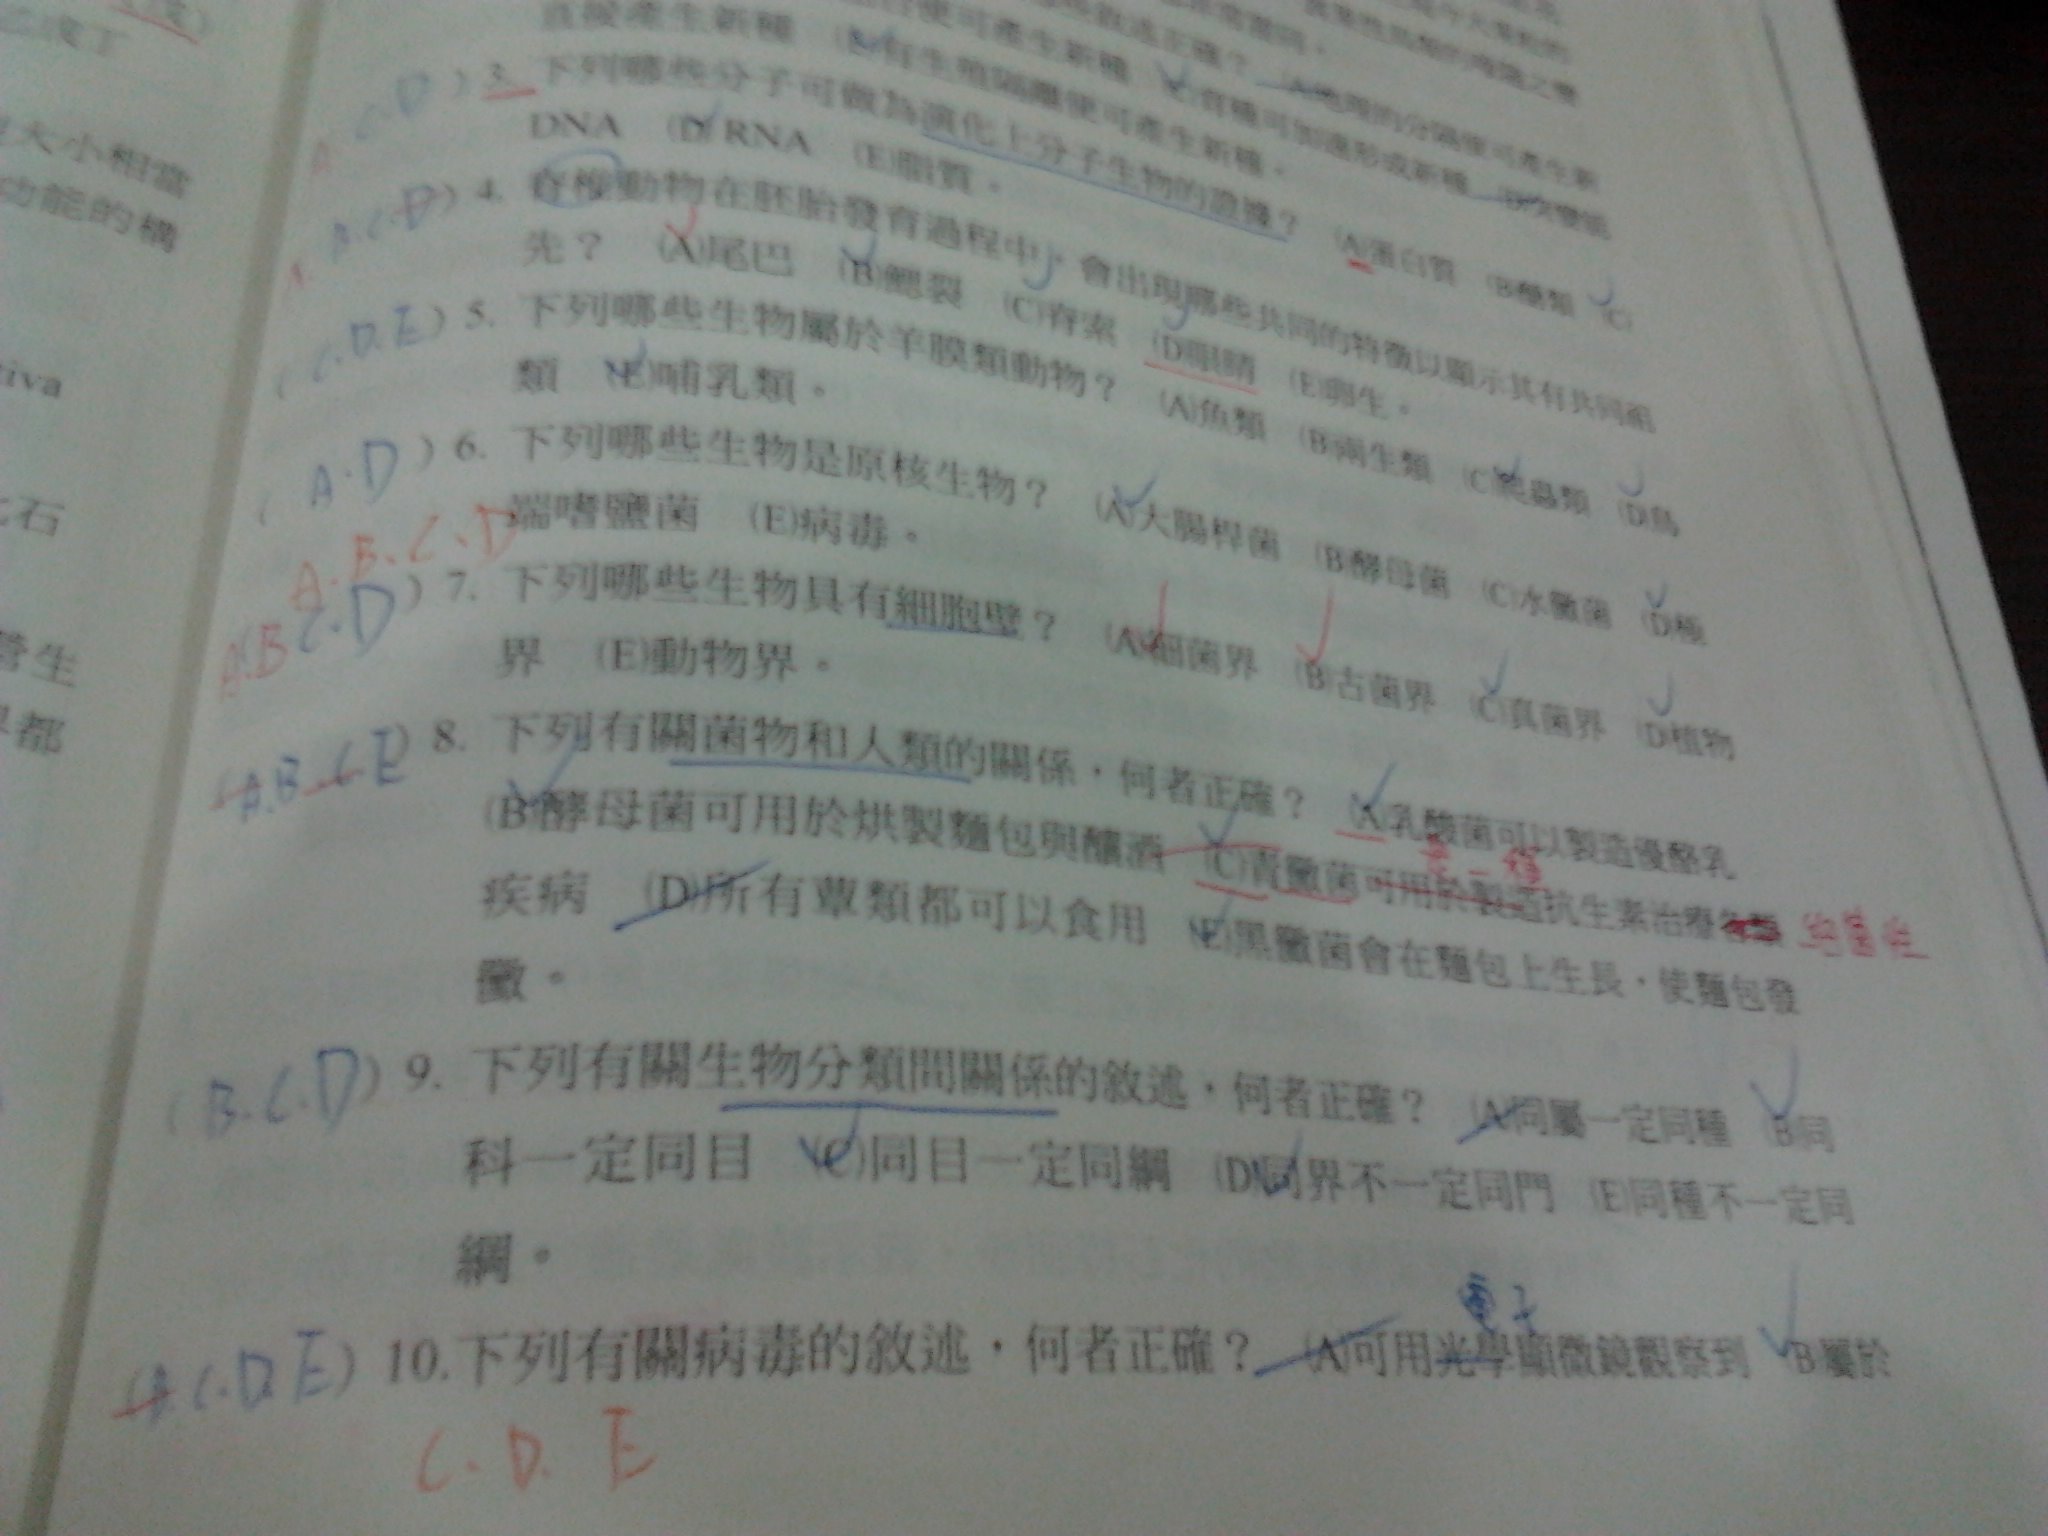 大小相當
功能的構
tiva
化石
營生
都
直接產生新種 (B)有生殖隔離便可產生新種
A. C. D ) 3. 下列哪些分子可做為演化上分子生物的證據? (A)蛋白質 (B)醣類 (C)
DNA (D)RNA (E)脂質。
A. B. C. D ) 4. 脊椎動物在胚胎發育過程中,會出現哪些共同的特徵以顯示其有共同祖
先? (A)尾巴 (B)鰓裂 (C)脊索 (D)眼睛 (E)卵生。
( C. D. E ) 5. 下列哪些生物屬於羊膜類動物? (A)魚類 (B)兩生類 (C)爬蟲類 (D)鳥
類 (E)哺乳類。
( A. D ) 6. 下列哪些生物是原核生物? (A)大腸桿菌 (B)酵母菌 (C)水黴菌 (D)極
端嗜鹽菌 (E)病毒。
A. B. C. D
A. B C. D ) 7. 下列哪些生物具有細胞壁? (A)細菌界 (B)古菌界 (C)真菌界 (D)植物
界 (E)動物界。
( A. B C E ) 8. 下列有關菌物和人類的關係,何者正確? (A)乳酸菌可以製造優酪乳
(B)酵母菌可用於烘製麵包與釀酒 (C)青黴菌可用於製造抗生素治療各類 細菌性
疾病 (D)所有蕈類都可以食用 (E)黑黴菌會在麵包上生長,使麵包發
黴。
( B. C. D ) 9. 下列有關生物分類間關係的敘述,何者正確? (A)同屬一定同種 (B)同
科一定同目 (C)同目一定同綱 (D)同界不一定同門 (E)同種不一定同
綱。
電子
( A. C. D. E ) 10. 下列有關病毒的敘述,何者正確? (A)可用光學顯微鏡觀察到 (B)屬於
C. D. E